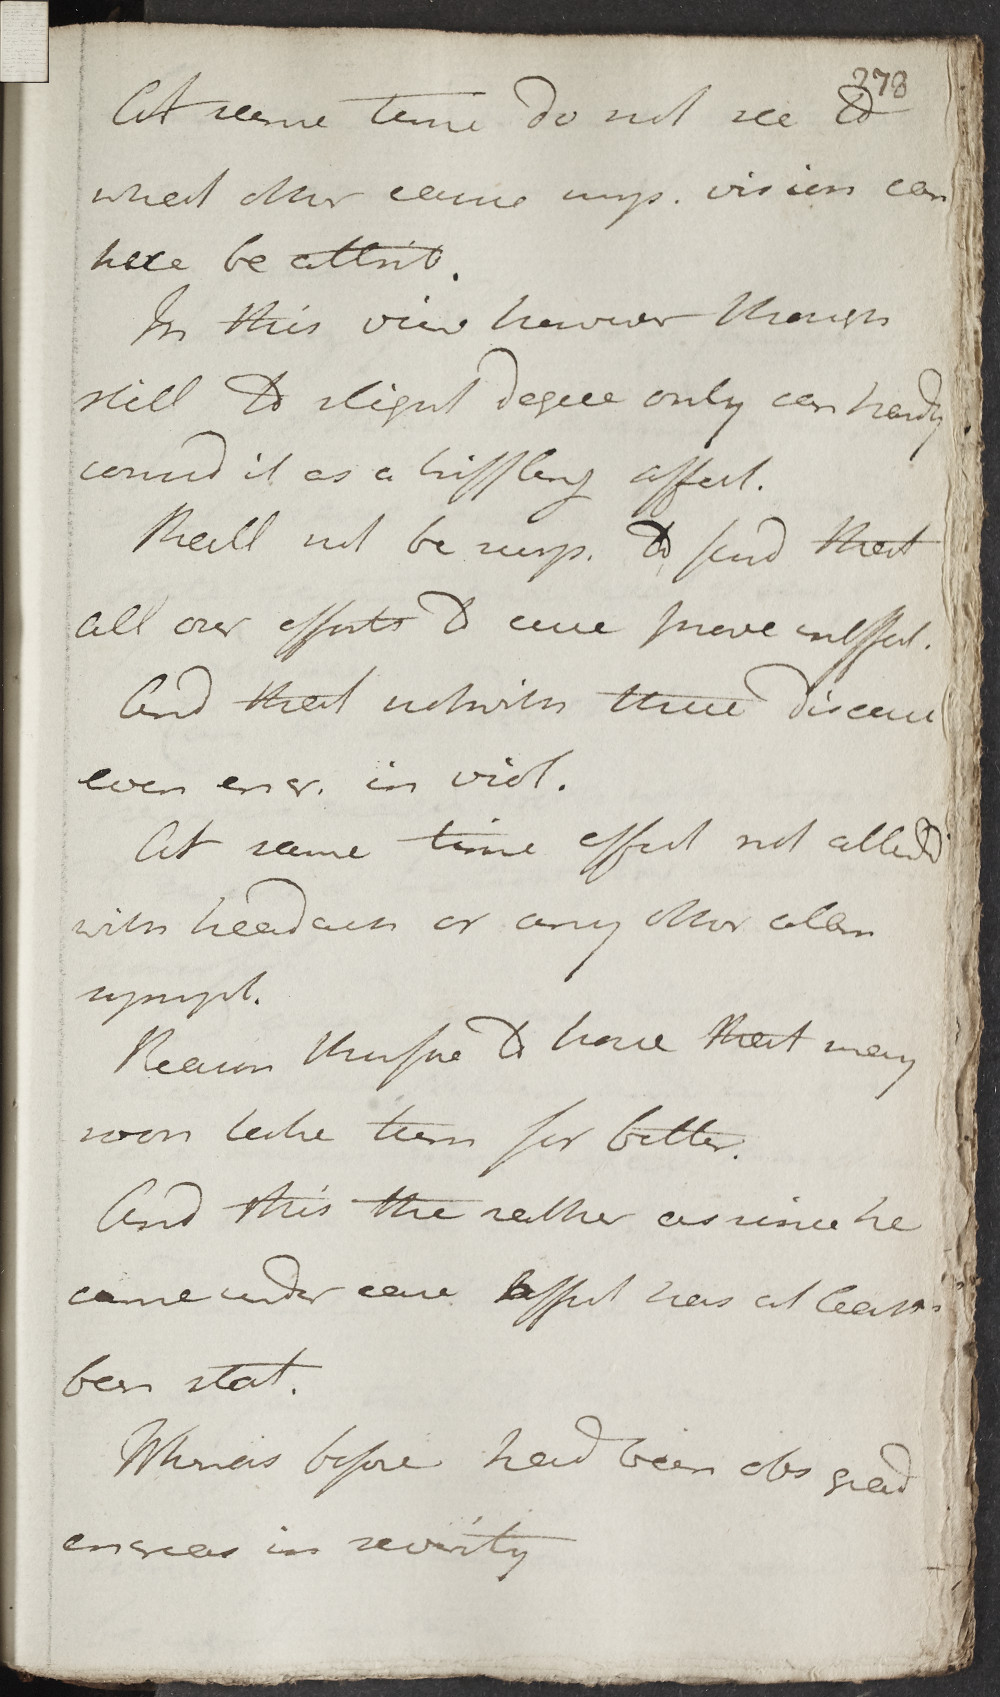 378
At same time do not see to
what other cause imp. vision can
here be attrib.
In this view however though
still to slight degree only can hardly
consid it as a triffling affect.
Shall not be surp. to find that
all our efforts to cure prove ineffect.
And that notwith these disease
even encr. in viol.
At same time affect not attend
with headach or any other alarm
sympt.
Reason therefore to hope that may
soon take turn for better.
And this the rather as since he
came under care affect has at least
been stat.
Whereas before had been obs grad
encreas in severity